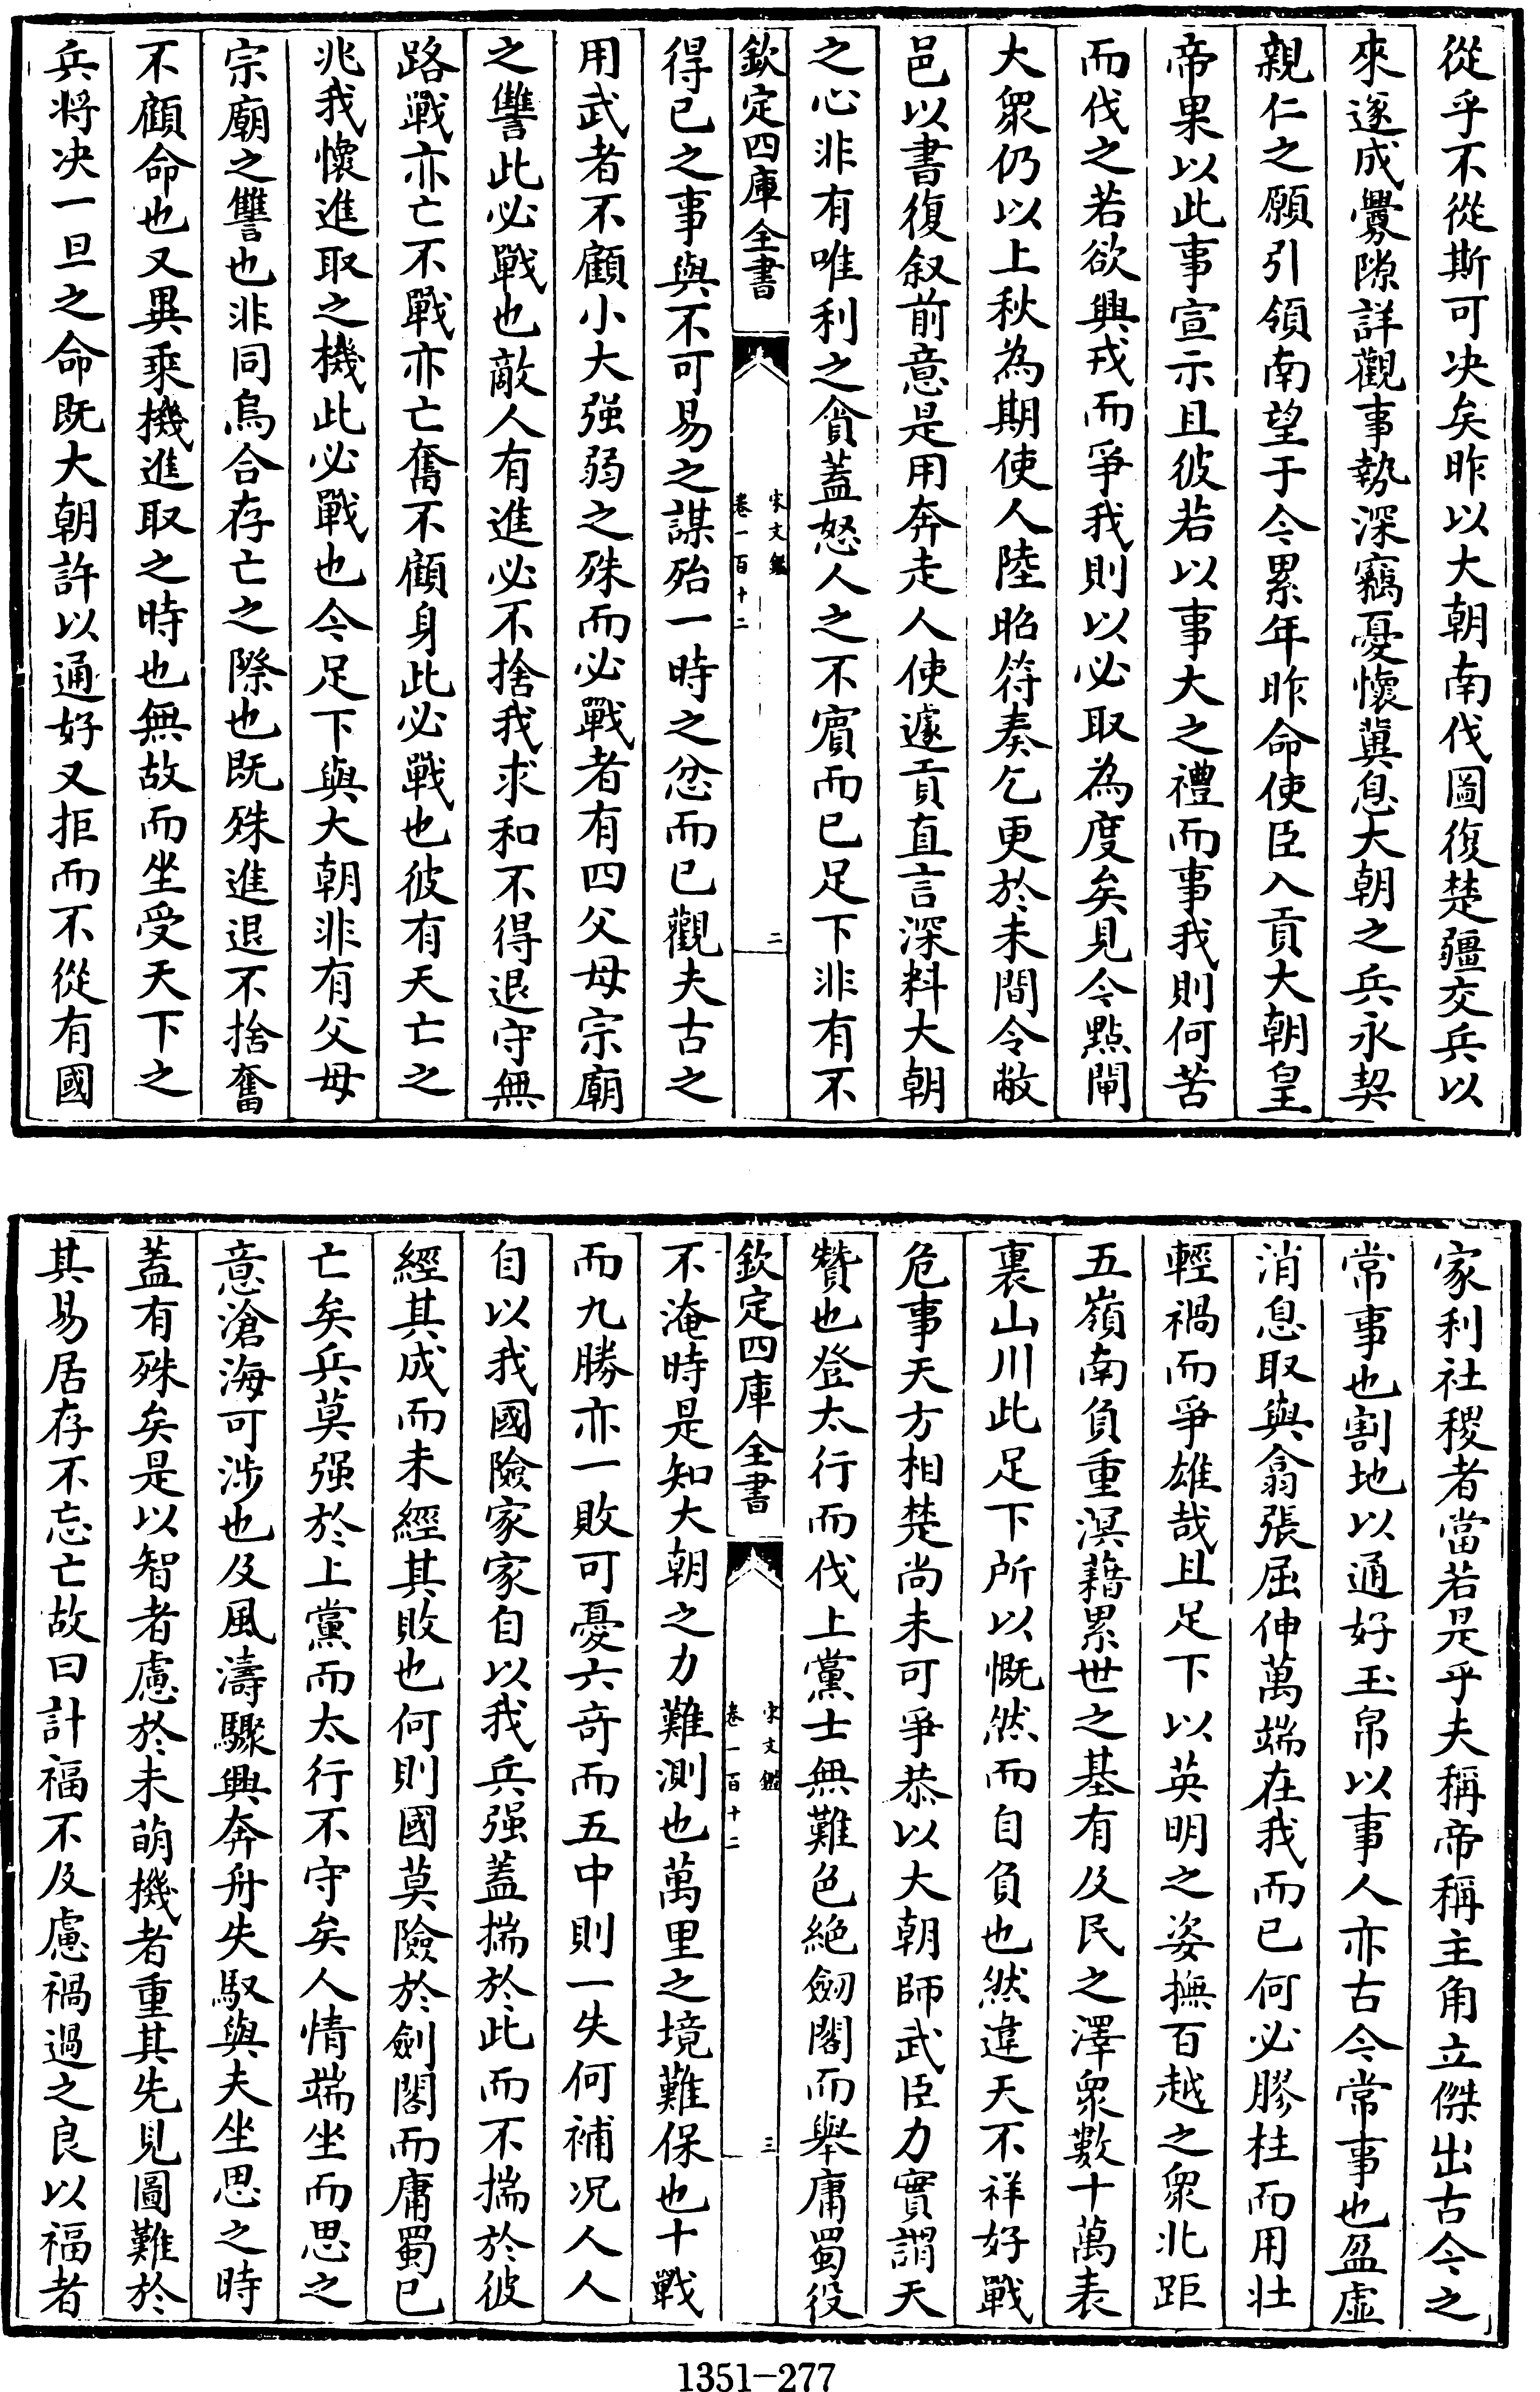 從乎不從斯可决矣昨以大朝南伐圖復楚疆交兵以
來遂成釁隙詳觀事勢深竊憂懷冀息大朝之兵永契
親仁之願引領南望于今累年昨命使臣入貢大朝皇
帝果以此事宣示且彼若以事大之禮而事我則何苦
而伐之若欲興戎而爭我則以必取為度矣見今點閘
大衆仍以上秋為期使人陸昭符奏乞更於未間令敝
邑以書復叙前意是用奔走人使遽貢直言深料大朝
之心非有唯利之貪蓋怒人之不賓而已足下非有不
欽定四庫全書
宋文鑑
卷一百十二
二
得已之事與不可易之謀殆一時之忿而已觀夫古之
用武者不顧小大强弱之殊而必戰者有四父母宗廟
之讐此必戰也敵人有進必不捨我求和不得退守無
路戰亦亡不戰亦亡奮不顧身此必戰也彼有天亡之
兆我懷進取之機此必戰也今足下與大朝非有父母
宗廟之讐也非同烏合存亡之際也既殊進退不捨奮
不顧命也又異乘機進取之時也無故而坐受天下之
兵將决一旦之命既大朝許以通好又拒而不從有國
家利社稷者當若是乎夫稱帝稱主角立傑出古今之
常事也割地以通好玉帛以事人亦古今常事也盈虛
消息取與翕張屈伸萬端在我而已何必膠柱而用壮
輕禍而爭雄哉且足下以英明之姿撫百越之衆北距
五嶺南負重溟藉累世之基有及民之澤衆數十萬表
裏山川此足下所以慨然而自負也然違天不祥好戰
危事天方相楚尚未可爭恭以大朝師武臣力實謂天
贊也登太行而伐上黨士無難色絕劒閣而舉庸蜀役
欽定四庫全書
宋文鑑
卷一百十二
三
不淹時是知大朝之力難測也萬里之境難保也十戰
而九勝亦一敗可憂六竒而五中則一失何補况人人
自以我國險家家自以我兵强蓋揣於此而不揣於彼
經其成而未經其敗也何則國莫險於劍閣而庸蜀已
亡矣兵莫强於上黨而太行不守矣人情端坐而思之
意滄海可涉也及風濤驟興奔舟失馭與夫坐思之時
蓋有殊矣是以智者慮於未萌機者重其先見圖難於
其易居存不忘亡故曰計福不及慮禍過之良以福者
1351-277